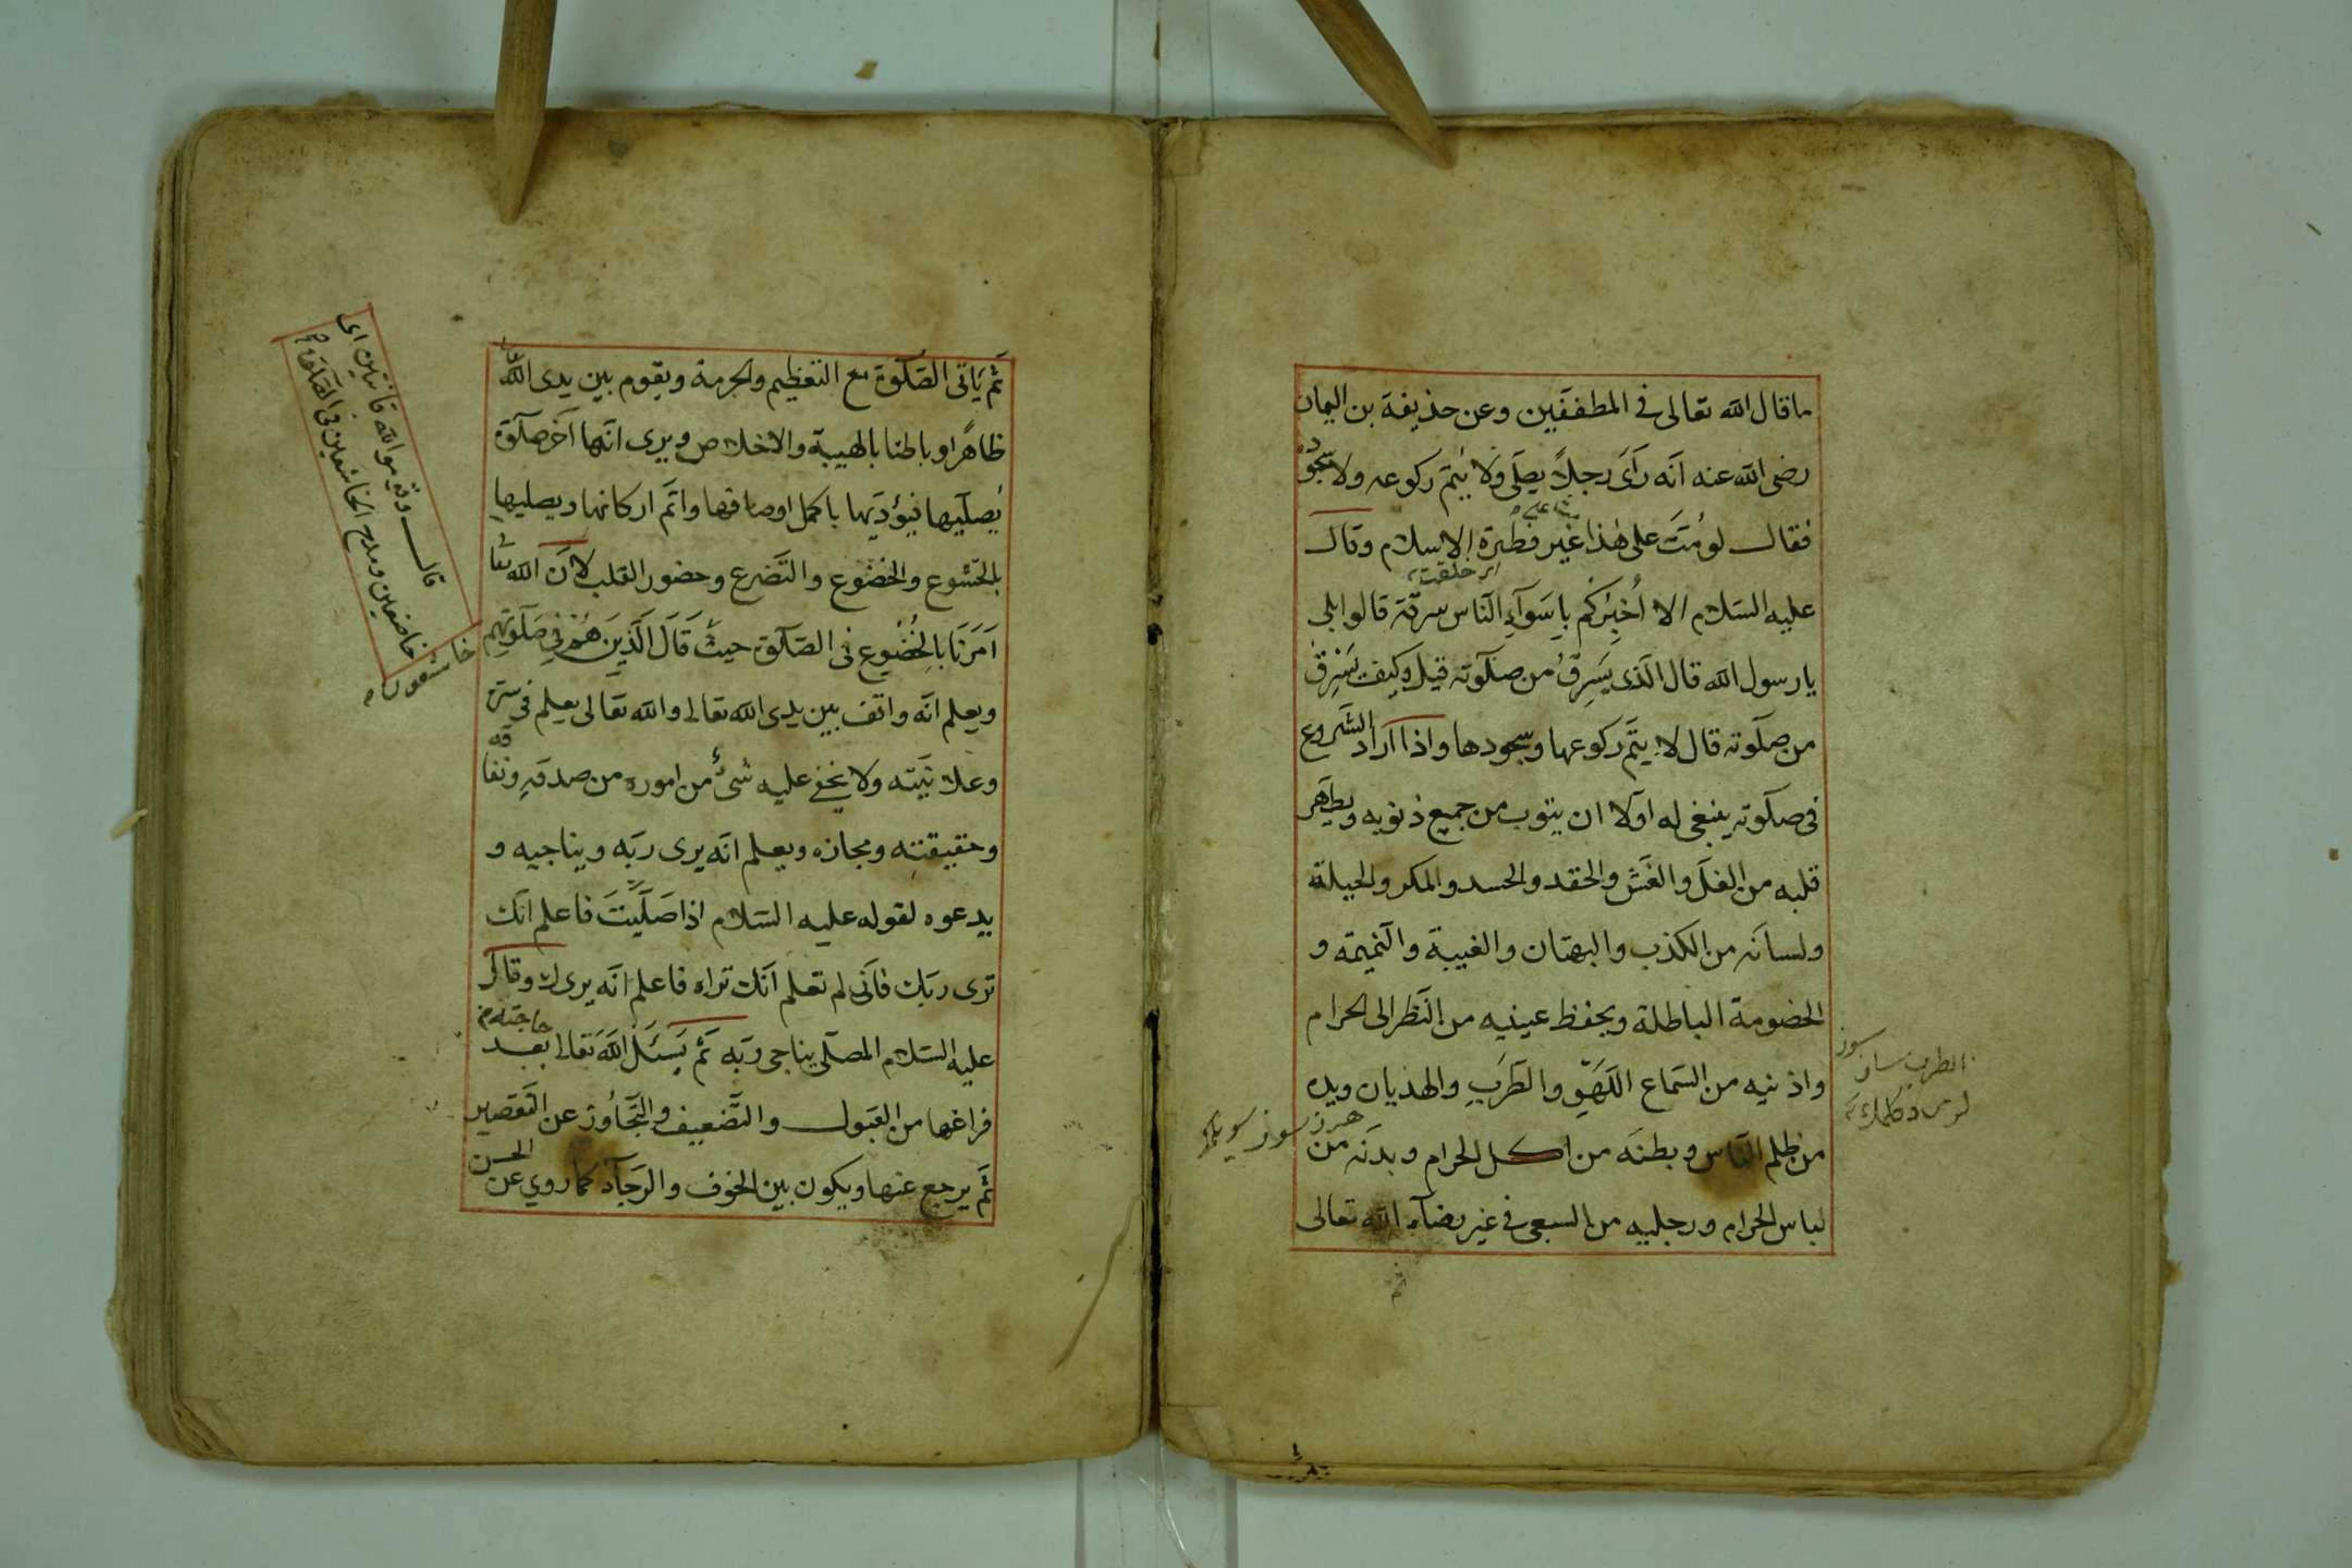 ما قال الله تعالى في المطففين وعن حذيفة بن اليمان
رضى الله عنه انّه رَآىَ رجلاً يصلّى ولا يُتمّ ركوعه ولا سجوده
فقال لو مُتَّ على هٰذا غير فطرة الاسلام وقال
عليه السّلام الا اُخبِرُكم باِسَوآءِ النّاس سرقة قالوا بلى
يا رسول الله قال الّذى يَسرِقُ من صلٰوته قيل وكيف يَسْرِقُ
من صلٰوته قال لا يتمّ ركوعها وسجودها واذا اراد الشّروع
فى صلٰوته ينبغى له اوّلا ان يتوب من جميع ذنوبه ويطهّر
قلبه من الغلّ والغَشّ والحقد والحسد والمكر والحيلة
ولسانه من الكذب والبهتان والغيبة والنّميمة و
الخصومة الباطلة ويحفظ عينيه من النّظر الى الحرام
واذنيه من السّماع اللّهو والطّرَبِ والهذيان ويده
من ظلم النّاس وبطنَه من اكل الحرام وبدنَه من
لباس الحرام ورجليه من السعى فى غير رضآء الله تعالى
ثم
ثمّ يَاتى الصّلٰوة مع التعظيم والحرمة ويقوم بين يدى الله
ظاهرًا وباطنا بالهيبة والاخلاص ويرى انّها آخر صلٰوة
يُصلّيها فيؤدّيها باكمل اوصافها واتمّ اركانها ويصليها
بالخشوع والخضوع والتّضرع وحضور القلب لانّ الله تعا
اَمَرَنَا بِالْخُضُوع فى الصّلٰوة حيث قَالَ الَّذِينَ هُمْ فِى صَلٰوتِهِم
خاشعون
ويعلم انّه واقف بين يدى الله تعالى والله تعالى يعلم فى سرّه
وعلانيّته ولا يخفى عليه شئٌ من اموره من صدقهِ ونفاقه
وحقيقته ومجازه ويعلم انّه يرى ربّه ويناجيه و
يدعوه لقوله عليه السّلام اذا صَلَّيْتَ فاعلم انّك
ترى ربّك فانّى لم تعلم انّك تراه فاعلم انّه يرىك وقال
عليه السّلام المصلّى يناجى ربّه ثمّ يَسئَلُ الله تعالى بعد
فراغها من القبول والتّضعيف والتّجَاوُز عن التّقصير
ثمّ يرجع عنها ويكون بين الخوف والرّجآء كما روي عن الحسن
قال وقوموا لله قانتين اى
خاضعين ومدح الخاشعين فى الصلٰوة